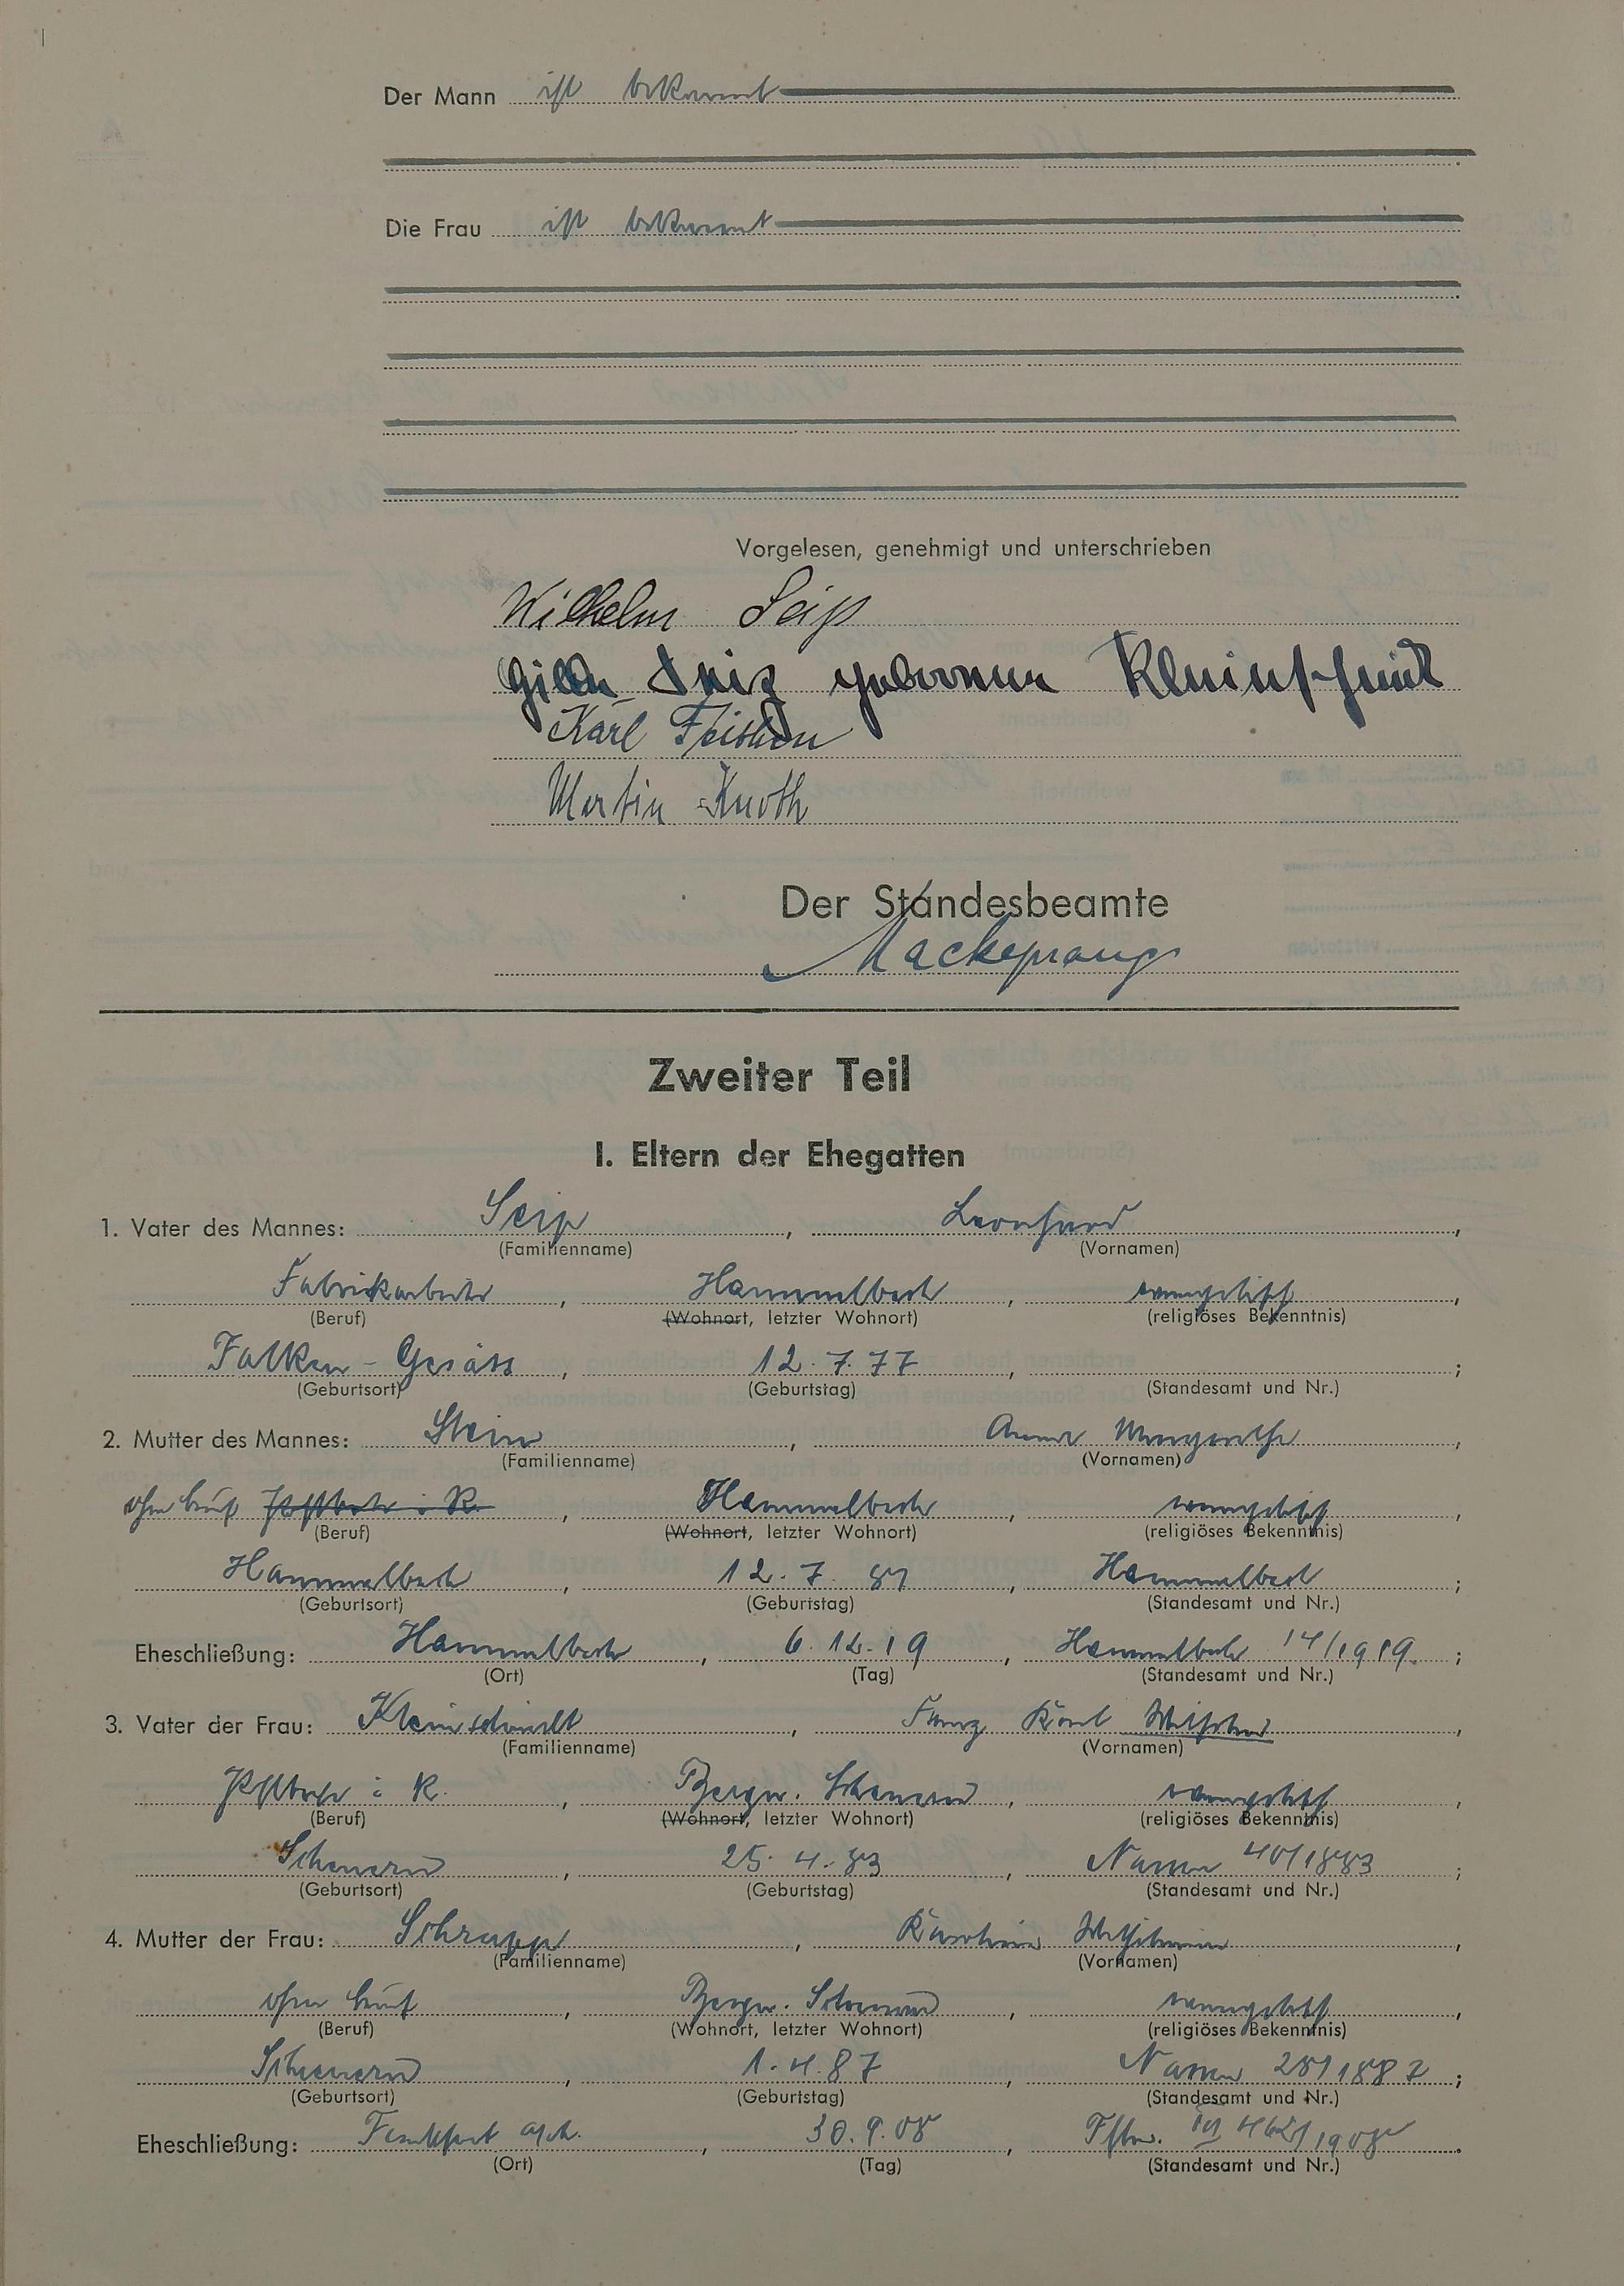 Der Mann ist bekannt
Die Frau ist bekannt
Vorgelesen, genehmigt und unterschrieben
Wilhelm Seip
Seip geborene Kleinschmidt
Karl
Martin Knoth
Der Standesbeamte
Mackeprang
Zweiter Teil
I. Eltern der Ehegatten
1. Vater des Mannes: Seip, Leonhard,
(Familienname) (Vornamen)
Fabrikarbeiter, Hammelbach, evangelisch,
(Beruf) (Wohnort, letzter Wohnort) (religiöses Bekenntnis)
Falken-Gesäss, 12.7.77,
(Geburtsort) (Geburtstag) (Standesamt und Nr.) ;
2. Mutter des Mannes: Stein, Anna Margarethe,
(Familienname) (Vornamen)
ohne Beruf, Hammelbach, evangelisch,
(Beruf) (Wohnort, letzter Wohnort) (religiöses Bekenntnis)
Hammelbach, 12.7., Hammelbach;
(Geburtsort) (Geburtstag) (Standesamt und Nr.)
Eheschließung: Hammelbach, 6.12.19, Hammelbach 14/1919.;
(Ort) (Tag) (Standesamt und Nr.)
3. Vater der Frau: Kleinschmidt, Franz Karl Wilhelm,
(Familienname) (Vornamen)
i. R., Bergn. Scheuern, evangelisch,
(Beruf) (Wohnort, letzter Wohnort) (religiöses Bekenntnis)
Scheuern, 25.4.83, Nassau 40/1883;
(Geburtsort) (Geburtstag) (Standesamt und Nr.)
4. Mutter der Frau: Schrupp, Karoline Wilhelmine,
(Familienname) (Vornamen)
ohne Beruf, Bergn. Scheuern, evangelisch,
(Beruf) (Wohnort, letzter Wohnort) (religiöses Bekenntnis)
Scheuern, 1.4.87, Nassau 28/1887;
(Geburtsort) (Geburtstag) (Standesamt und Nr.)
Eheschließung: Frankfurt, 30.9.08,
(Ort) (Tag) (Standesamt und Nr.)